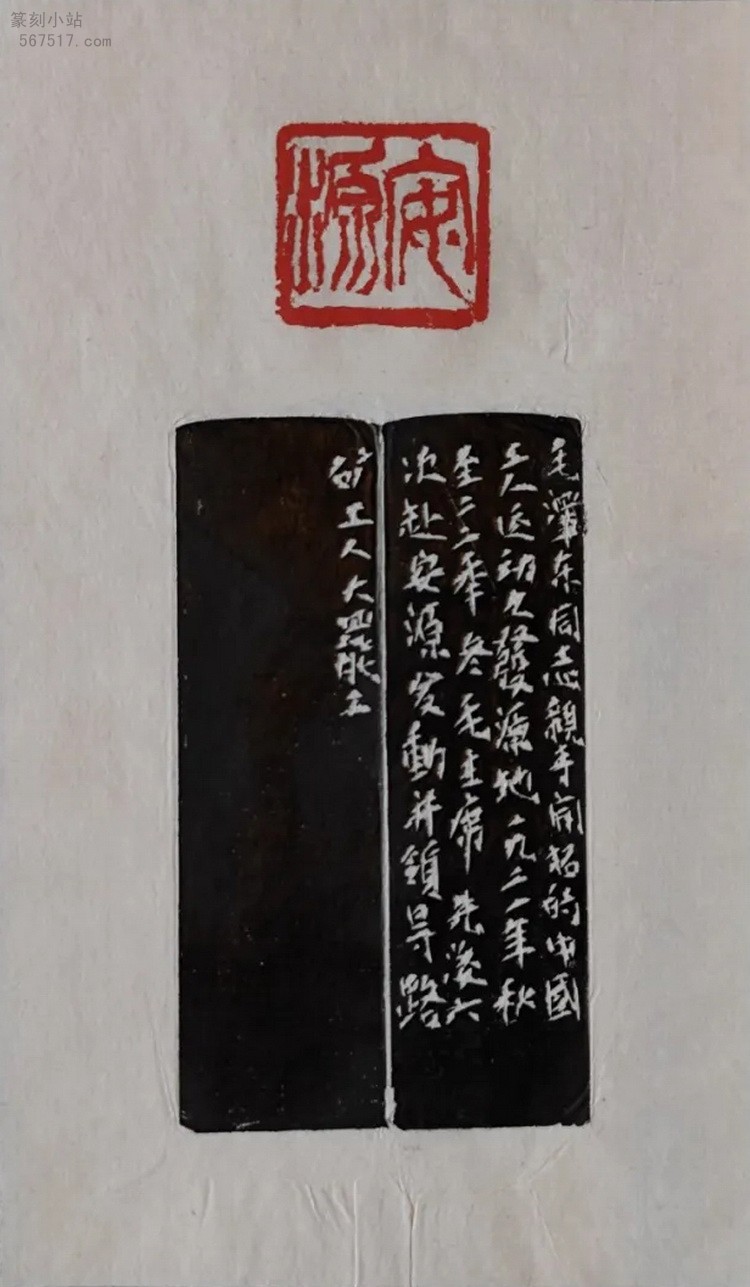 篆刻小站
567517.com
安源
毛澤东同志親手開拓的中國
工人运动之發源地一九二一年秋
至三〇年冬毛主席先後六
次赴安源发動并領导路
矿工人大罷工